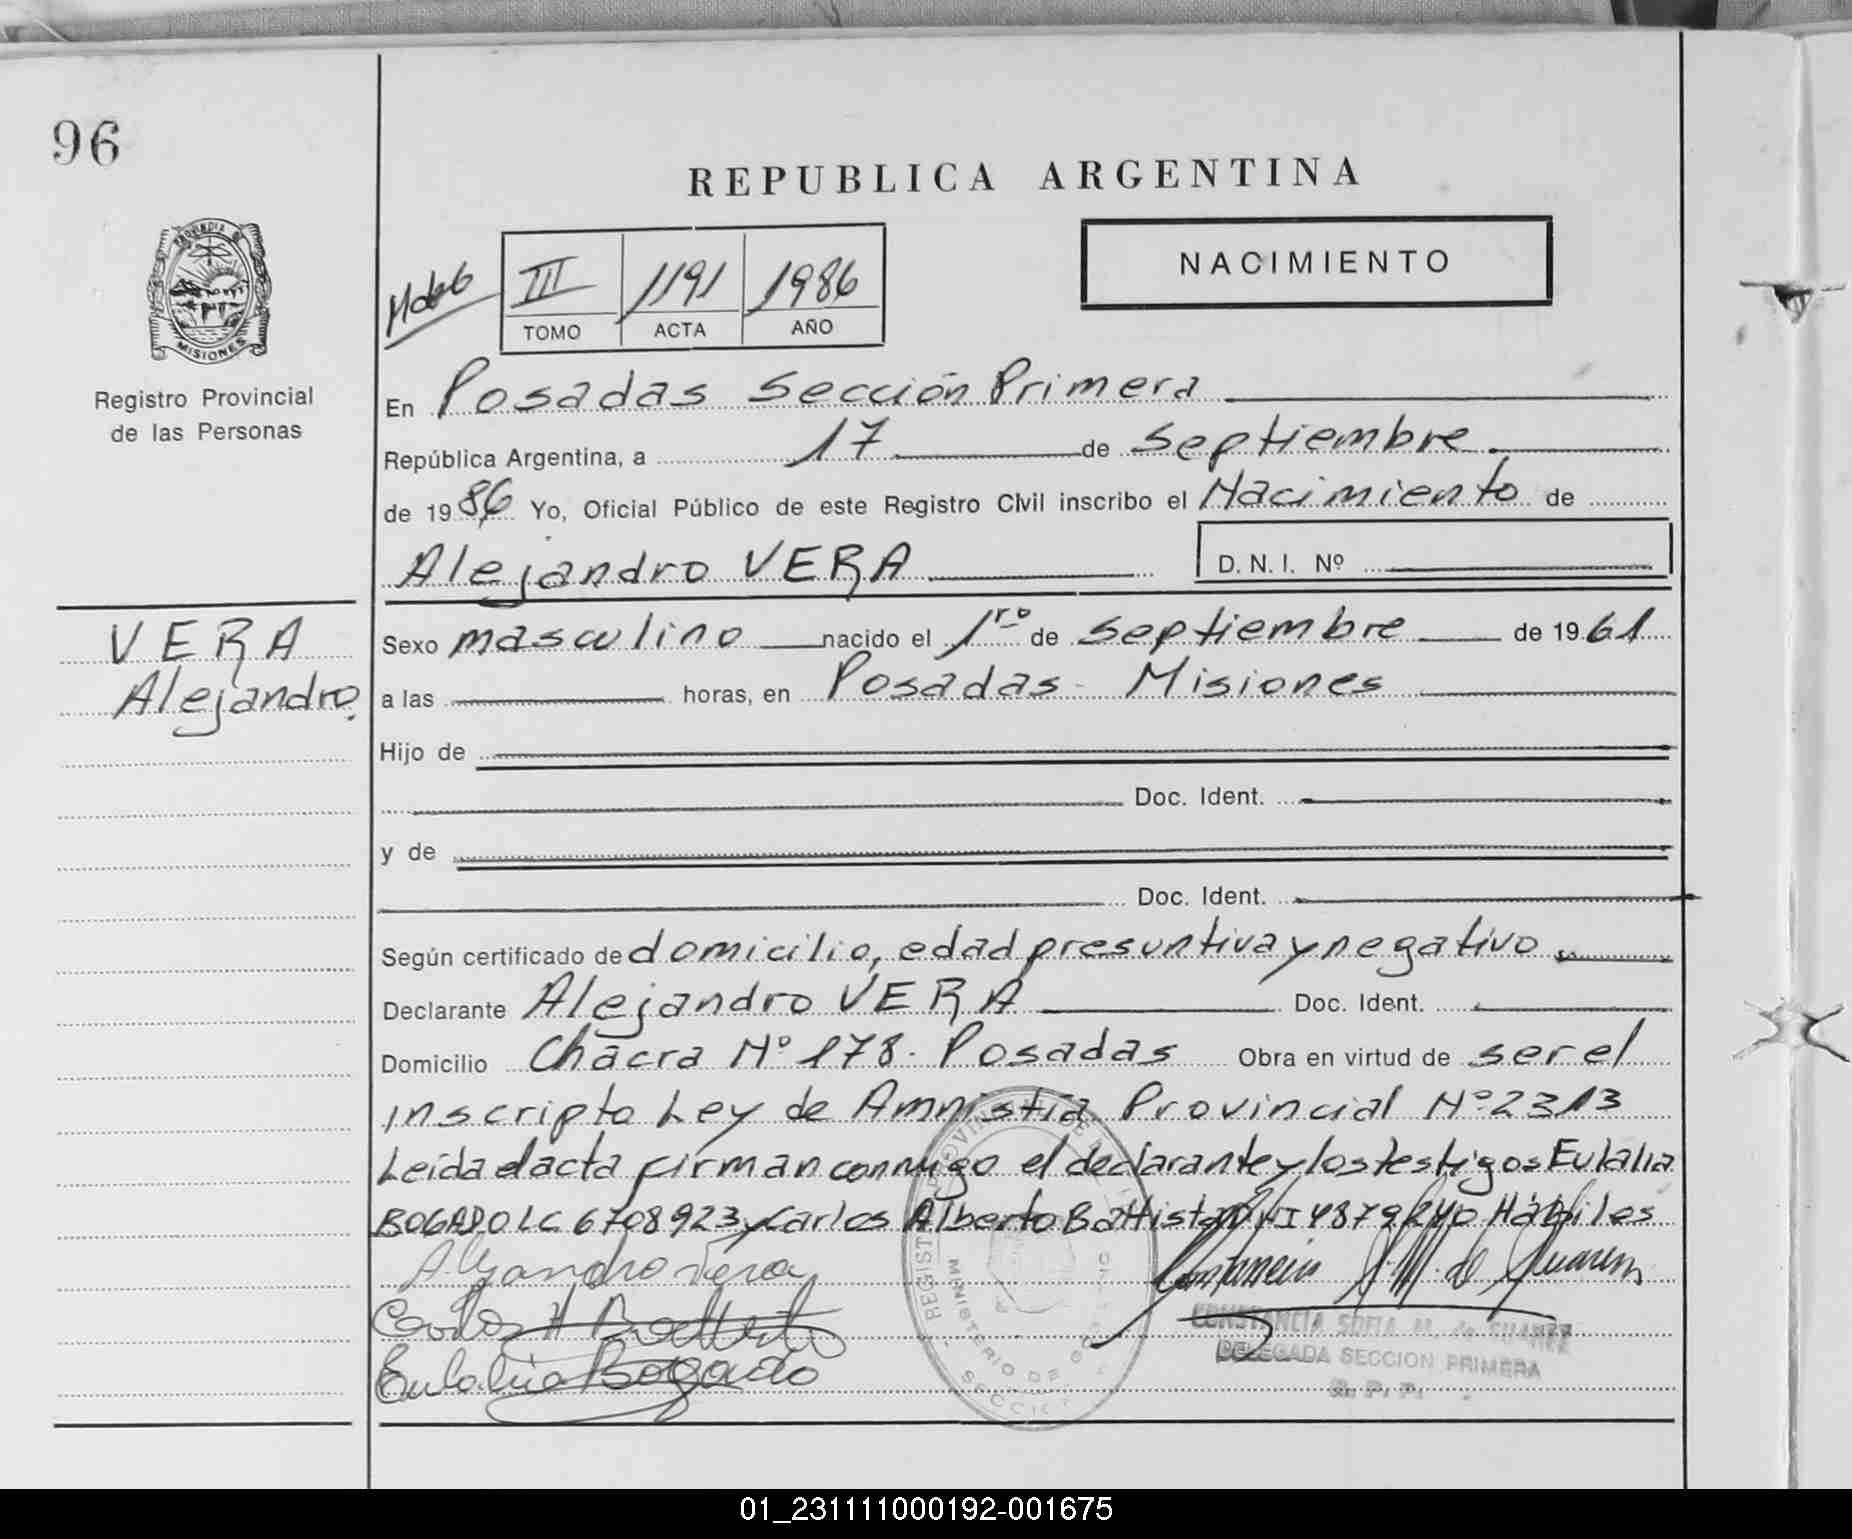 96
REPUBLICA ARGENTINA
PROVINCIA DE
MISIONES
Registro Provincial
de las Personas
III 1191 1986
TOMO ACTA AÑO
NACIMIENTO
En Posadas Sección Primera
República Argentina, a 17 de Septiembre
de 1986 Yo, Oficial Público de este Registro Civil inscribo el Nacimiento de
Alejandro VERA D. N. I. Nº
VERA
Alejandro
Sexo masculino nacido el 1ro de Septiembre de 1961
a las horas, en Posadas - Misiones
Hijo de
Doc. Ident.
y de
Doc. Ident.
Según certificado de domicilio, edad presuntiva y negativo
Declarante Alejandro VERA Doc. Ident.
Domicilio Chacra Nº 178. Posadas Obra en virtud de ser el
inscripto Ley de Amnistía Provincial Nº 2313
Leída el acta firman conmigo el declarante y los testigos Eulalia
BOGADO LC 6708923 y Carlos Alberto Hábiles
Alejandro Vera
Carlos A
Eulalia Bogado
CONSTANCIA SOFIA M. de SUAREZ
DELEGADA SECCION PRIMERA
R. P. P.
MINISTERIO DE GOBIERNO
01_231111000192-001675